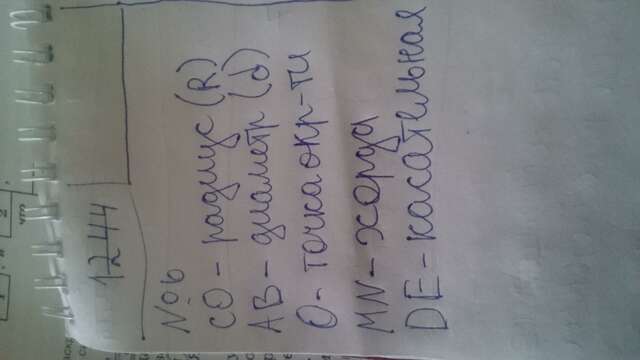 1244
№ 6
CO - радиус (R)
AB - диаметр (D)
O - точка окр-ти
MN - хорда
DE - касательная